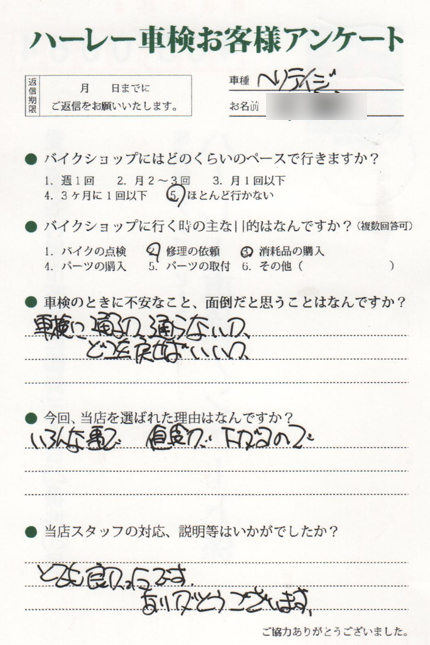 ハーレー車検お客様アンケート
返信期限
月　　日までに
ご返信をお願いいたします。
車種 ヘリテイジ
お名前
● バイクショップにはどのくらいのペースで行きますか？
1. 週1回　2. 月2～3回　3. 月1回以下
4. 3ヶ月に1回以下　5. ほとんど行かない
● バイクショップに行く時の主な目的はなんですか？（複数回答可）
1. バイクの点検　2. 修理の依頼　3. 消耗品の購入
4. パーツの購入　5. パーツの取付　6. その他（　　　　　　）
● 車検のときに不安なこと、面倒だと思うことはなんですか？
車検に通るの、通らないの、
どこを直せばいいの、
● 今回、当店を選ばれた理由はなんですか？
いろんな事で
● 当店スタッフの対応、説明等はいかがでしたか？
とても良かったです。
ありがとうございます。
ご協力ありがとうございました。